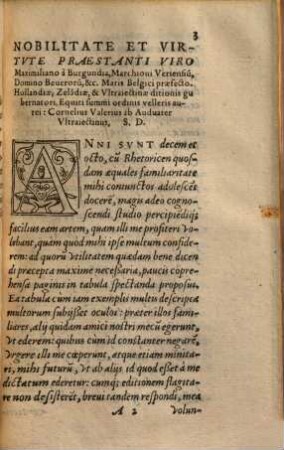 3
NOBILITATE ET VIR-
TVTE PRAESTANTI VIRO
Maximiliano à Burgundia, Marchioni Veriensiū,
Domino Beuerorū, &c. Maris Belgici præfecto.
Hollandiæ, Zelādiæ, & Vltraiectinæ ditionis gu
bernatori. Equiti summi ordinis velleris au-
rei: Cornelius Valerius ab Auduater
Vltraiectinus, S. D.
ANNI SVNT decem et
octo, cū Rhetoricen quos-
dam æquales familiaritate
mihi coniunctos adolescēs
docerē, magis adeo cogno-
scendi studio percipiēdiq;
facilius eam artem, quam illi me profiteri vo-
lebant, quam quòd mihi ipse multum confide-
rem: ad quorū vtilitatem quædam bene dicen
di præcepta maximè necessaria, paucis copre-
hensa paginis in tabula spectanda proposui.
Ea tabula cum iam exemplis multis descripta
multorum subijsset oculos: præter illos fami-
liares, alij quidam amici nostri mecū egerunt,
vt ederem: quibus cum id constanter negarē,
vrgere illi me cœperunt, atque etiam minita-
ri, mihi futurū, vt ab alijs id quod esset à me
dictatum ederetur: cumq; editionem flagita-
re non desisterēt, breui tandem respondi, mea
A 2 volun-